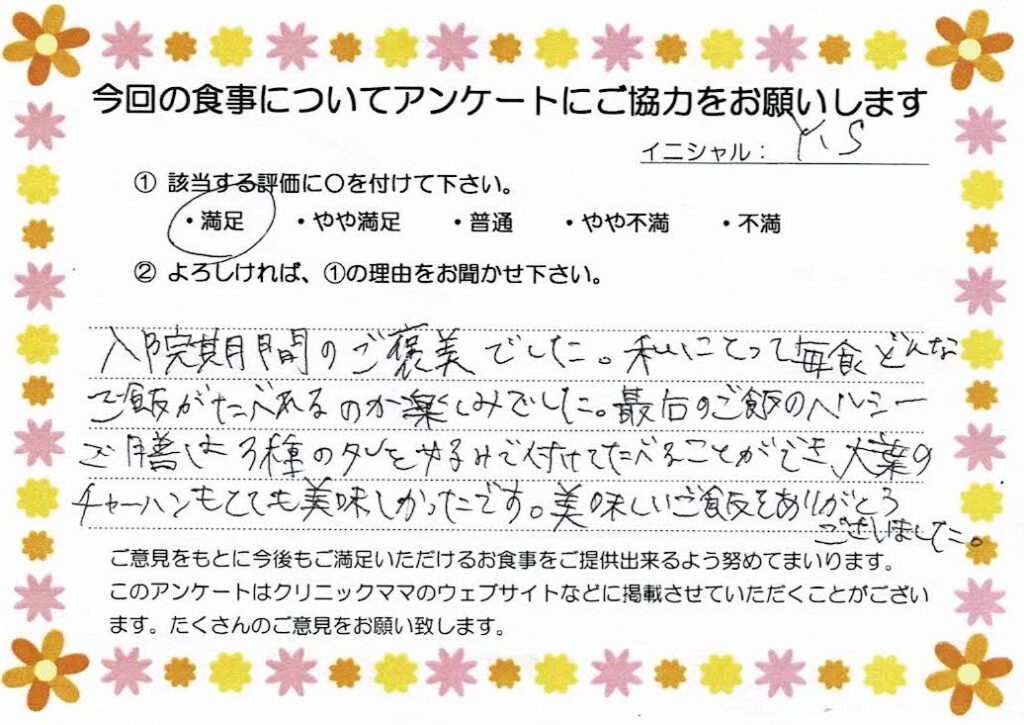 今回の食事についてアンケートにご協力をお願いします
イニシャル： Y.S
① 該当する評価に〇を付けて下さい。
・満足 ・やや満足 ・普通 ・やや不満 ・不満
② よろしければ、①の理由をお聞かせ下さい。
入院期間のご褒美でした。私にとって毎食どんな
ご飯がたべれるのか楽しみでした。最后のご飯のヘルシー
ご膳は3種のタレを好みで付けてたべることができ、大葉の
チャーハンもとても美味しかったです。美味しいご飯をありがとう
ございました。
ご意見をもとに今後もご満足いただけるお食事をご提供出来るよう努めてまいります。
このアンケートはクリニックママのウェブサイトなどに掲載させていただくことがござい
ます。たくさんのご意見をお願い致します。